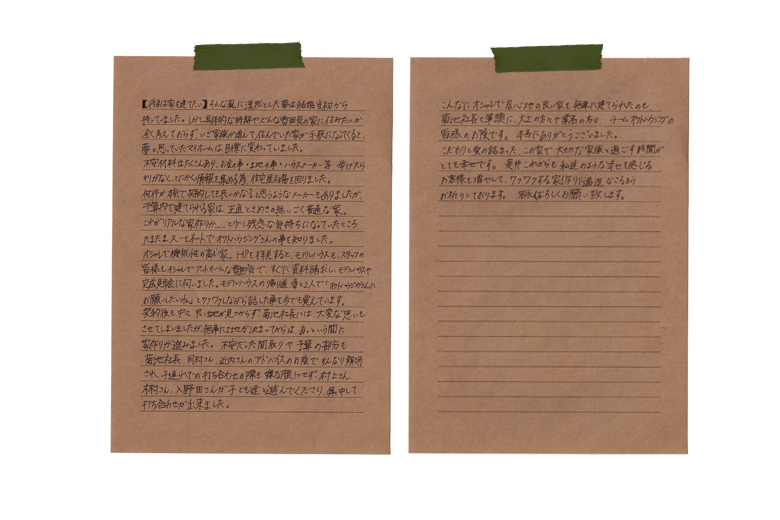 【将来は家を建てたい】そんな風に漠然とした夢は結婚当初から
持っていました。しかし具体的な時期やどんな雰囲気の家に住みたいか
全く考えておらず、いざ家族が増えて住んでいた家が手狭になってくると、
夢と思っていたマイホームは目標に変わっていました。
不安材料はたくさんあり、お金の事・土地の事・ハウスメーカー等、挙げたら
キリがなく、とにかく情報を集める為、住宅展示場を回りました。
何件か本気で契約しても良いかな？と思うようなメーカーもありましたが、
予算内で建てられる家は、正直ときめきの無い、ごく普通な家。
これがリアルな家作りか…と少し残念な気持ちになっていたところ、
たまたまスーモネットでオフトハウジングさんの事を知りました。
オシャレで機能性の高い家。HPを拝見すると、モデルハウスも、スタッフの
皆様もオシャレでアットホームな雰囲気で、すぐに資料請求し、モデルハウスや
完成見学会に伺いました。モデルハウスの帰り道、妻と2人で「オフトハウジングさんに
お願いしたいね」とワクワクしながら話した事を今でも覚えています。
契約後も中々、良い土地が見つからず、菊池社長には大変な思いを
させてしまいましたが、無事に土地が決まってからは、あっという間に
家作りが進みました。不安だった間取りや予算の部分も
菊池社長、岡村さん、近内さんのアドバイスのお陰ですんなり解消
され、子連れでの打ち合わせの際も嫌な顔ひとつせず、村上さん、
木村さん、入野田さんが子ども達と遊んでくださり、集中して
打ち合わせが出来ました。
こんなにオシャレで居心地の良い家を無事に建てられたのも、
菊池社長を筆頭に、大工の方々や業者の方々 チームオフトハウジングの
皆様のお陰です。本当にありがとうございました。
こだわりと愛の詰まったこの家で大切な家族と過ごす時間が
とても幸せです。是非これからも私達のような幸せを感じる
お客様を増やして、ワクワクする家作りに邁進なさるよう
お祈りしております。末永くよろしくお願い致します。